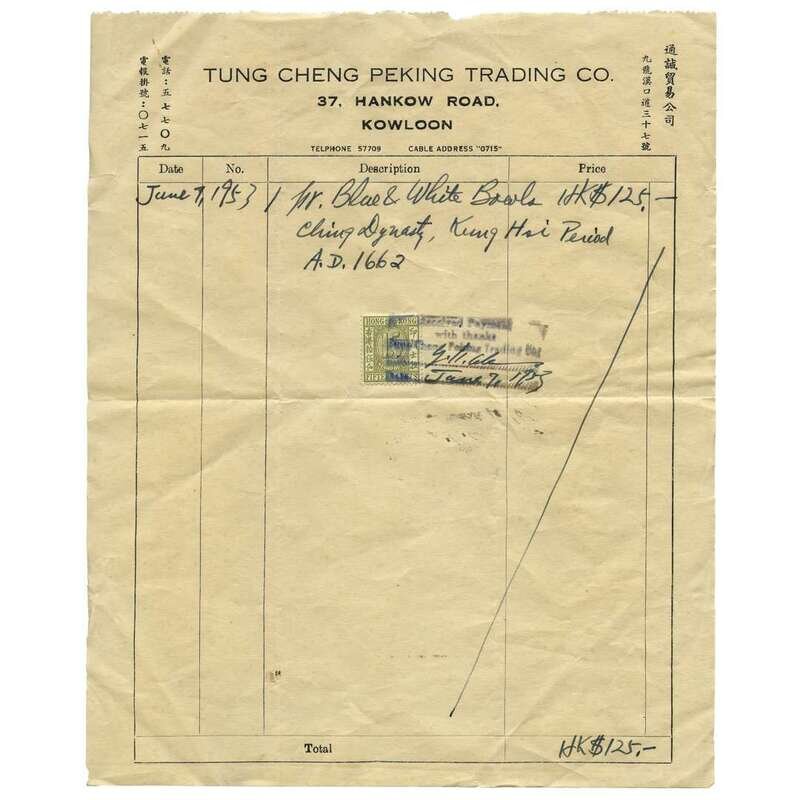 通誠貿易公司
九龍漢口道三十七號
電話：五七七〇九
電報掛號：〇七一五
TUNG CHENG PEKING TRADING CO.
37, HANKOW ROAD,
KOWLOON
TELPHONE 57709 CABLE ADDRESS "0715"
Date No. Description Price
June 7, 1953 1 pr. Blue & White Bowls HK$125.-
Ching Dynasty, Kung Hsi Period
A.D. 1662
HONG KONG
FIFTEEN CENTS
Received Payment
with thanks
Tung Cheng Peking Trading Co.
Date June 7, 1953
Total HK$125.-